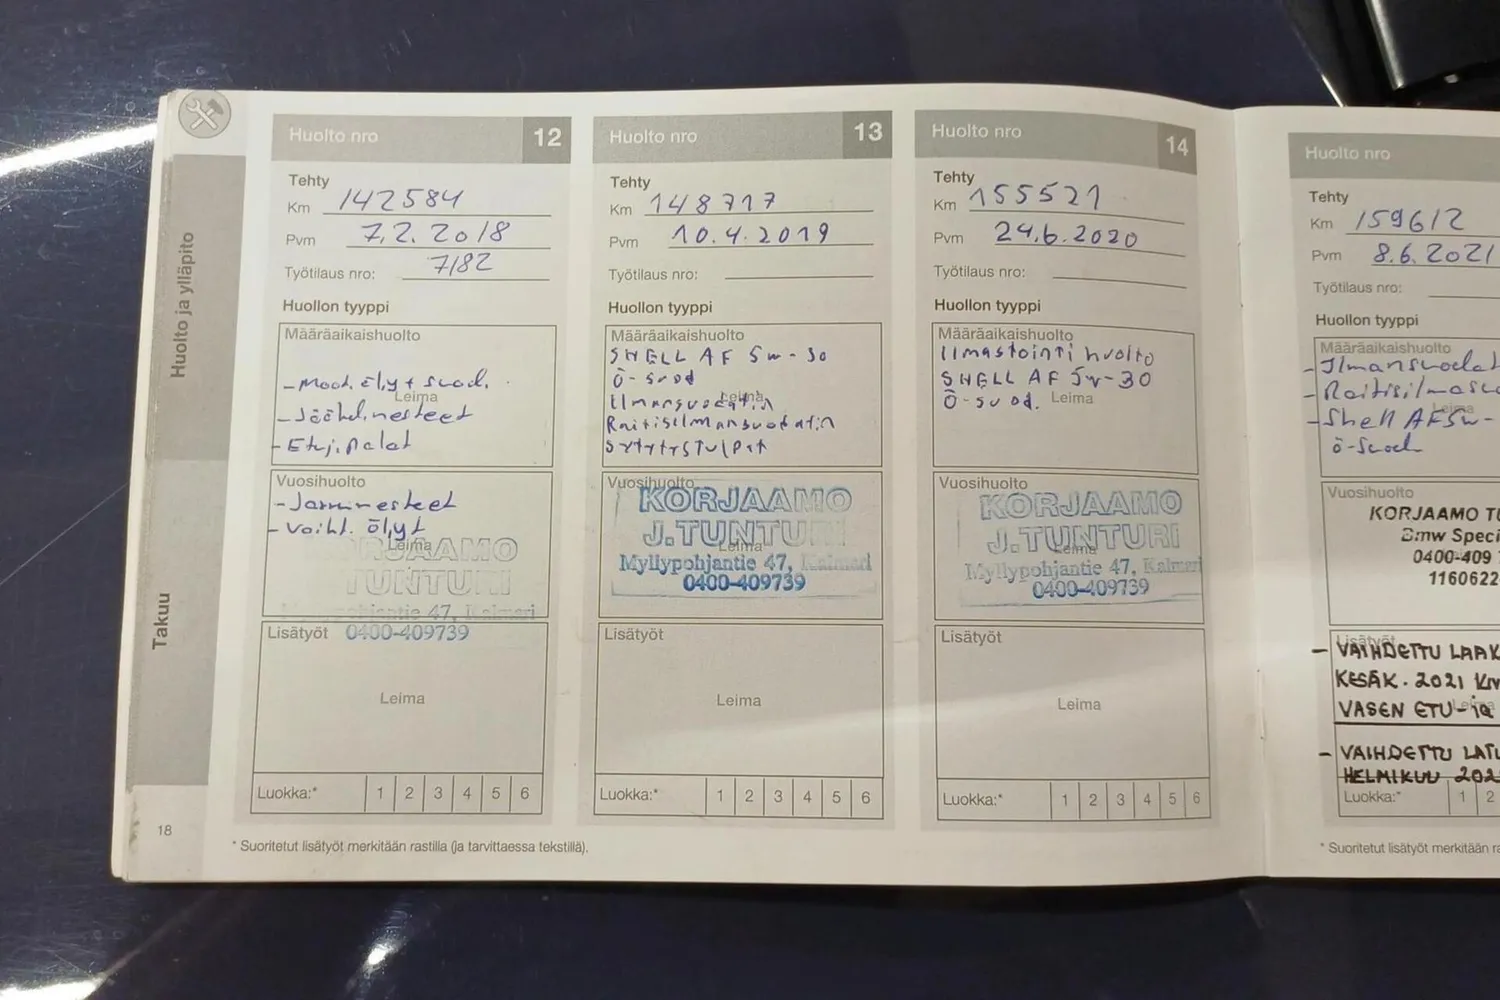 Huolto ja ylläpito
Takuu
18
Huolto nro 12
Tehty
Km 142584
Pvm 7.2.2018
Työtilaus nro: 7182
Huollon tyyppi
Määräaikaishuolto
- Moot. öljy + suod.
Leima
- Jäähd. nesteet
- Etuj. palat
Vuosihuolto
- Jarrunesteet
- Vaiht. öljyt
Leima
KORJAAMO
TUNTURI
Myllypohjantie 47, Kalmari
Lisätyöt 0400-409739
Leima
Luokka:* 1 2 3 4 5 6
Huolto nro 13
Tehty
Km 148717
Pvm 10.4.2019
Työtilaus nro:
Huollon tyyppi
Määräaikaishuolto
SHELL AF 5w-30
Ö-suod
Leima
Ilmansuodatin
Raitisilmansuodatin
Sytytystulpat
Vuosihuolto
KORJAAMO
J.TUNTURI
Leima
Myllypohjantie 47, Kalmari
0400-409739
Lisätyöt
Leima
Luokka:* 1 2 3 4 5 6
Huolto nro 14
Tehty
Km 155521
Pvm 24.6.2020
Työtilaus nro:
Huollon tyyppi
Määräaikaishuolto
Ilmastointi huolto
SHELL AF 5w-30
Ö-suod. Leima
Vuosihuolto
KORJAAMO
J.TUNTURI
Leima
Myllypohjantie 47, Kalmari
0400-409739
Lisätyöt
Leima
Luokka:* 1 2 3 4 5 6
* Suoritetut lisätyöt merkitään rastilla (ja tarvittaessa tekstillä).
Huolto nro
Tehty
Km 159612
Pvm 8.6.2021
Työtilaus nro:
Huollon tyyppi
Määräaikaishuolto
- Ilmansuodat
- Raitisilmasu
Leima
- Shell AF 5w-
ö-suod
Vuosihuolto
KORJAAMO TU
Bmw Speci
0400-409
1160622
Lisätyöt
- VAIHDETTU LAAK
KESÄK. 2021 KM
Leima
VASEN ETU-
- VAIHDETTU LATU
HELMIKUU 202
Luokka:* 1 2
* Suoritetut lisätyöt merkitään ra